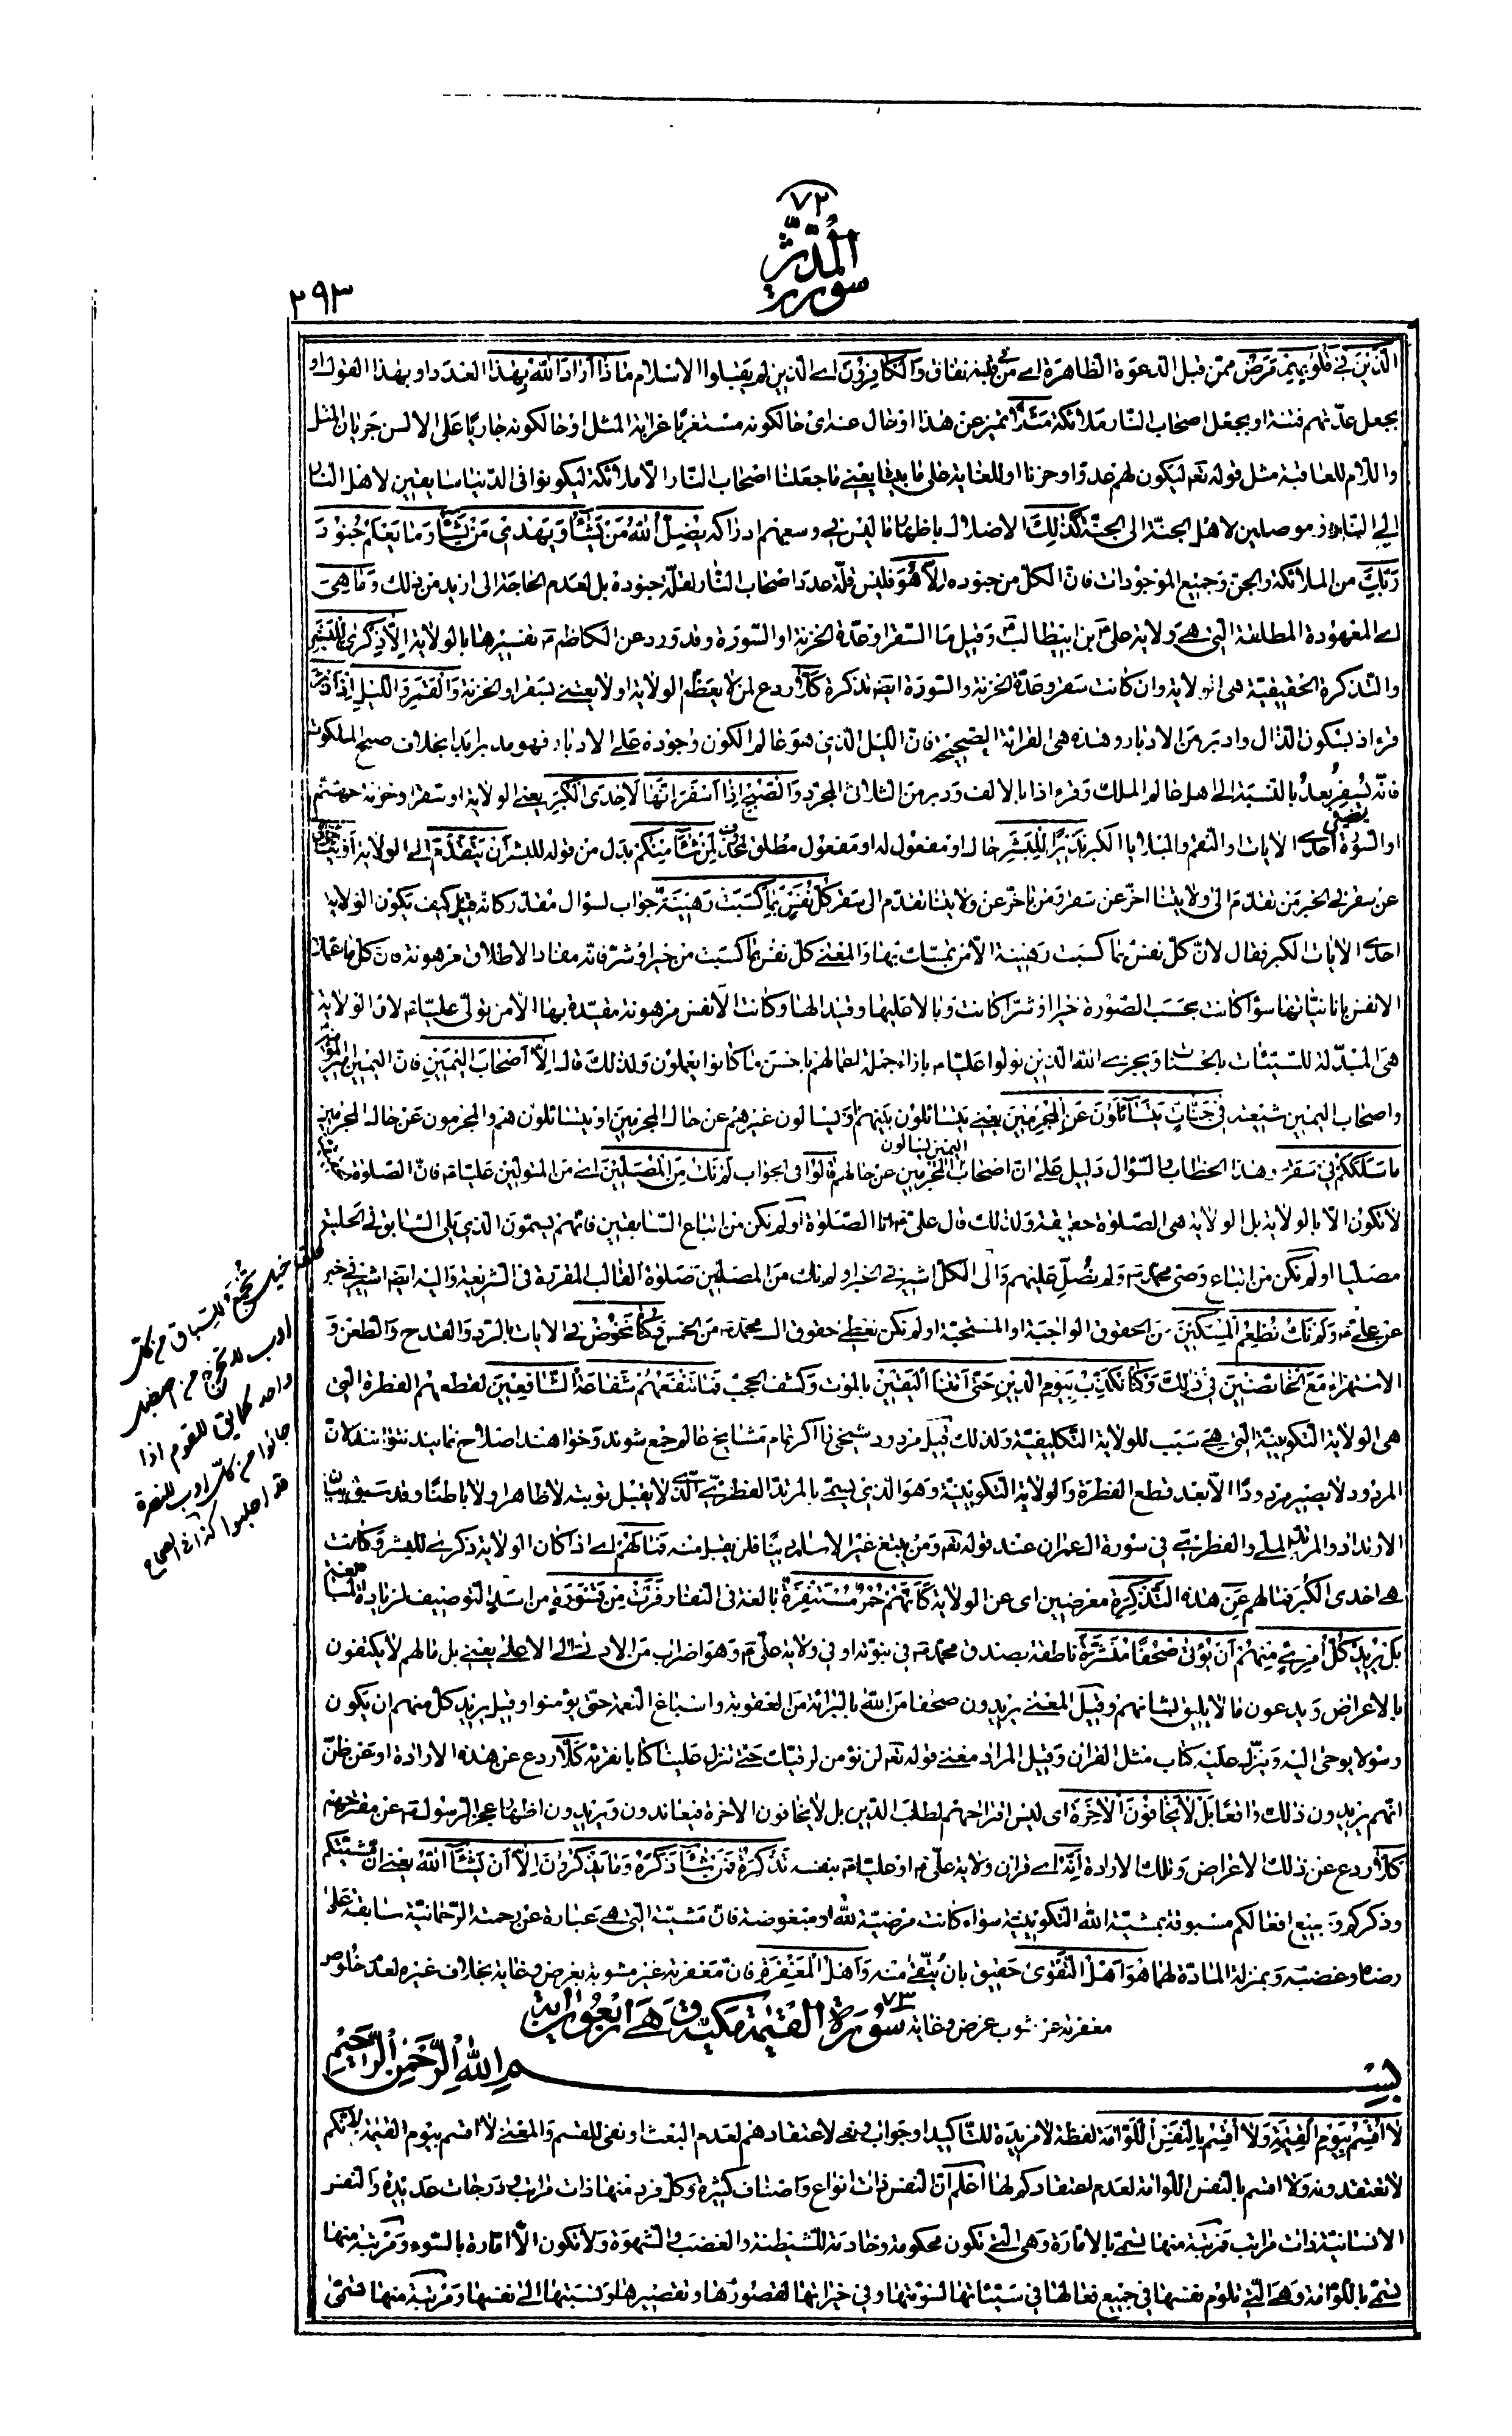 ٧٢
سورة المدّثّر
٢٩٣
الَّذينَ فى قُلُوبِهِمْ مَرَضٌ ممّن قبل الدعوة الظّاهرة اى من فى قلبه نفاق وَالْكافِرُونَ اى الّذين لم يقبلوا الاسلام ماذا اَرادَ اللهُ بِهذا العدد او بهذا القول او
بجعل عدّتهم فتنة او بجعل اصحاب النّار ملائكة مَثَلاً تميز عن هذا او حال عنه اى حالكونه مستغربا غرابة المثل او حالكونه جاريا على الالسن جريان المثل
واللّام للعاقبة مثل قوله تعم ليكون لهم عدوّا وحزنا او للغاية على ما بيننا يعنى ما جعلنا اصحاب النّار الّا ملائكة ليكونوا فى الدّنيا سايقين لاهل النّار
الى النّار و موصلين لاهل الجنّة الى الجنّة كَذلِكَ الاضلال باظهار ما ليس فى وسعهم ادراكه يُضِلُّ اللهُ مَنْ يَشاءُ وَيَهْدى مَنْ يَشاءُ وَما يَعْلَمُ جُنُودَ
رَبِّكَ من الملائكة والجنّ وجميع الموجودات فانّ الكلّ من جنوده اِلّا هُوَ فليس قلّة عدد اصحاب النّار لقلّة جنوده بل لعدم الحاجة الى ازيد من ذلك وَما هِىَ
اى المعهودة المطلقة الّتى هى ولاية علىّ بن ابيطالب ع وقيل ما السّقر او عدّة الخزنة او السّورة وقد ورد عن الكاظم ع تفسيرها بالولاية اِلّا ذِكْرى لِلْبَشَرِ
والتّذكرة الحقيقيّة هى الولاية وان كانت سقر وعدّة الخزنة والسّورة ايضا تذكرة كَلّا ردع لمن لا يعظّم الولاية او لا يعتنى بسقر او الخزنة وَالْقَمَرِ وَالَّيْلِ اِذْ اَدْبَرَ
قرء اذ بسكون الذّال وادبر من الادبار وهذه هى القرائة الصّحيحة فانّ اللّيل الّذى هو عالم الكون وجوده على الادبار فهو مدبر ابدا بخلاف صبح الملكوت
فانّه يسفر بعد بالنّسبة الى اهل عالم الملك وقرء اذا بالالف ودبر من الثّلاثى المجرّد وَالصُّبْحِ اِذا اَسْفَرَ اِنَّها لَاِحْدَى الْكُبَرِ يعنى الولاية او سقر او خزنة جهنّم
او السّورة احدى الآيات او النّقم والبلايا الكبر نَذيراً لِلْبَشَرِ حال او مفعول له او مفعول مطلق لمحذوف لِمَنْ شاءَ مِنْكُمْ بدل من قوله للبشر اَنْ يَتَقَدَّمَ الى الولاية اَوْ يَتَاَخَّرَ
عن سقر فى الخبر من تقدّم الى ولايتنا اخّر عن سقر ومن تاخّر عن ولايتنا تقدّم الى سقر كُلُّ نَفْسٍ بِما كَسَبَتْ رَهينَةٌ جواب لسؤال مقدّر كانّه قيل كيف يكون الولاية
احدى الآيات الكبر فقال لانّ كلّ نفس بما كسبت رهينة الّا من تمسّك بها والمعنى كلّ نفس بما كسبت من خير او شرّ فانّه مفاد الاطلاق مرهونة فانّ كلّ ما عملت
الانفس بانانيّاتها سواء كانت بحسب الصّورة خيرا او شرّا كانت وبالا عليها وقيدا لها وكانت الانفس مرهونة مقيّدة بها الّا من تولّى عليّا ع لانّ الولاية
هى المبدّلة للسّيّئات بالحسنات ويجزى الله الّذين تولّوا عليّا ع بازاء جملة اعمالهم باحسن ما كانوا يعملون ولذلك قال اِلّا اَصْحابَ الْيَمينِ فانّ اليمين امير المؤمنين
واصحاب اليمين شيعته فى جَنّاتٍ يَتَساءَلُونَ عَنِ الْمُجْرِمينَ يعنى يتسائلون بينهم او يسألون غيرهم عن حال المجرمين او يتسائلون هم والمجرمون عن حال المجرمين
ما سَلَكَكُمْ فى سَقَرَ وهذا الخطاب والسّؤال دليل على انّ اصحاب اليمين يسألون المجرمين عن حالهم قالُوا فى الجواب لَمْ نَكُ مِنَ الْمُصَلّينَ اى من المتولّين عليّا ع فانّ الصّلوة
لا تكون الّا بالولاية بل الولاية هى الصّلوة حقيقة ولذلك قال علىّ ع انا الصّلوة او لم نكن من اتباع السّابقين فانّهم يسمّون الّذى يلى السّابق فى الحلبة
مصلّيا او لم نكن من اتباع وصىّ محمّد ص ولم نصلّ عليهم والى الكلّ اشير فى الخبر او لم نك من المصلّين صلوة القالب المقرّرة فى الشّريعة واليه ايضا اشير فى خبر
عن علىّ ع وَلَمْ نَكُ نُطْعِمُ الْمِسْكينَ من الحقوق الواجبة او المستحبّة او لم نكن نعطى حقوق ال محمّد ص من الخمس وَكُنّا نَخُوضُ فى الآيات بالرّد والقدح والطّعن و
الاستهزاء مَعَ الْخائِضينَ فى ذلك وَكُنّا نُكَذِّبُ بِيَوْمِ الدّينِ حَتّى اَتانَا الْيَقينُ بالموت وكشف الحجب فَما تَنْفَعُهُمْ شَفاعَةُ الشّافِعينَ لقطعهم الفطرة الّتى
هى الولاية التّكوينيّة الّتى هى سبب للولاية التّكليفيّة ولذلك قيل مردود شيخى را اگر تمام مشايخ عالم جمع شوند وخواهند اصلاح نمايند نتوانند لانّ
المردود لا يصير مردودا الّا بعد قطع الفطرة والولاية التّكوينيّة وهو الّذى يسمّى بالمرتدّ الفطرىّ الّذى لا يقبل توبته لا ظاهرا ولا باطنا وقد سبق بيان
الارتداد والمرتدّ الملّى والفطرىّ فى سورة ال عمران عند قوله تعم ومن يبتغ غير الاسلام دينا فلن يقبل منه فَما لَهُمْ اى اذا كان الولاية ذكرى للبشر وكانت
هى احدى الكبر فما لهم عَنْ هذه التَّذْكِرَةِ معرضين اى عن الولاية كَاَنَّهُمْ حُمُرٌ مُسْتَنْفِرَةٌ بالغة فى النّفار فَرَّتْ مِنْ قَسْوَرَةٍ من اسد التّوصيف لزيادة المبالغة
بَلْ يُريدُ كُلُّ امْرِئٍ مِنْهُمْ اَنْ يُؤْتى صُحُفاً مُنَشَّرَةً ناطقة بصدق محمّد ص فى نبوّته او فى ولاية علىّ ع وهو اضراب من الادنى الى الاعلى يعنى بل ما لهم لا يكتفون
بالاعراض ويدعون ما لا يليق بشأنهم وقيل المعنى يريدون صحفا من الله بالبرائة من العقوبة واسباغ النّعمة حتّى يؤمنوا وقيل يريد كلّ منهم ان يكون
رسولا يوحى اليه وينزل عليه كتاب مثل القرآن وقيل المراد معنى قوله تعم لن نؤمن لرقيّك حتّى تنزل علينا كتابا نقرئه كَلّا ردع عن هذه الارادة او عن ظنّ
انّهم يريدون ذلك واقعا بَلْ لا يَخافُونَ الْآخِرَةَ اى ليس اقتراحهم لطلب الدّين بل لا يخافون الآخرة فيعاندون ويريدون اظهار عجز الرّسول ص عن مقترحهم
كَلّا ردع عن ذلك الاعراض وتلك الارادة اِنَّهُ اى قرآن ولاية علىّ ع او عليّا ع بنفسه تَذْكِرَةٌ فَمَنْ شاءَ ذَكَرَهُ وَما يَذْكُرُونَ اِلّا اَنْ يَشاءَ اللهُ يعنى انّ مشيّتكم
وذكركم وجميع افعالكم مسبوقة بمشيّة الله التّكوينيّة سواء كانت مرضيّة لله او مبغوضة فانّ مشيّته الّتى هى عبارة عن رحمته الرّحمانيّة سابقة على
رضاه وغضبه وبمنزلة المادّة لهما هُوَ اَهْلُ التَّقْوى حقيق بان يتّقى منه وَاَهْلُ الْمَغْفِرَةِ فانّ مغفرته غير مشوبة بغرض وغاية بخلاف غيره لعدم خلوص
مغفرته عن شوب غرض وغاية ٧٣ سورة القيمة مكيّة وهى اربعون اية
بسم الله الرّحمن الرّحيم
لا اُقْسِمُ بِيَوْمِ الْقِيمَةِ وَلا اُقْسِمُ بِالنَّفْسِ اللَّوّامَةِ لفظة لا مزيدة للتّأكيد او جواب ونفى لاعتقادهم لعدم البعث او نفى للقسم والمعنى لا اقسم بيوم القيمة لانّكم
لا تعتقدونه ولا اقسم بالنّفس اللّوّامة لعدم اعتقادكم لها اعلم انّ النّفس ذات انواع واصناف كثيرة وكلّ فرد منها ذات مراتب ودرجات عديدة والنّفس
الانسانيّة ذات مراتب فمرتبة منها تسمّى بالامّارة وهى الّتى تكون محكومة وخادمة للشّيطنة والغضب والشّهوة ولا تكون الّا امّارة بالسّوء ومرتبة منها
تسمّى باللّوّامة وهى الّتى تلوم نفسها فى جميع فعالها فى سيّئاتها لسوئتها وفى خيراتها لقصورها وتقصيرها ونسبتها الى نفسها ومرتبة منها تسمّى
خيل تجمع للسّباق من كلّ
اوب لا تخرج من اصطبل
واحد كما يق للقوم اذا
جاؤا من كلّ اوب للنصرة
قد احلبوا كذا فى الصحاح